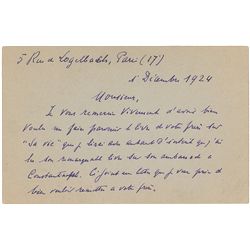 5 Rue de Logelbach, Paris (17e)
1 Décembre 1924
Monsieur,
Je vous remercie vivement d'avoir bien
voulu me faire parvenir le livre de votre frère sur
"Sa vie" que je lirai avec autant d'intérêt que j'ai
lu son remarquable livre sur son ambassade à
Constantinople. Ci-joint un lettre que je vous prie de
bien vouloir remettre à votre frère.